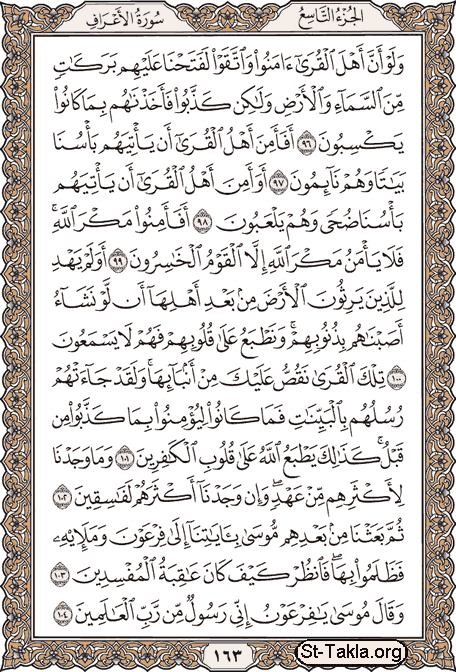 الجزء التاسع
سورة الأعراف
وَلَوْ أَنَّ أَهْلَ ٱلْقُرَىٰٓ ءَامَنُوا۟ وَٱتَّقَوْا۟ لَفَتَحْنَا عَلَيْهِم بَرَكَـٰتٍ
مِّنَ ٱلسَّمَآءِ وَٱلْأَرْضِ وَلَـٰكِن كَذَّبُوا۟ فَأَخَذْنَـٰهُم بِمَا كَانُوا۟
يَكْسِبُونَ ٩٦ أَفَأَمِنَ أَهْلُ ٱلْقُرَىٰٓ أَن يَأْتِيَهُم بَأْسُنَا
بَيَـٰتًا وَهُمْ نَآئِمُونَ ٩٧ أَوَأَمِنَ أَهْلُ ٱلْقُرَىٰٓ أَن يَأْتِيَهُم
بَأْسُنَا ضُحًى وَهُمْ يَلْعَبُونَ ٩٨ أَفَأَمِنُوا۟ مَكْرَ ٱللَّهِ ۚ
فَلَا يَأْمَنُ مَكْرَ ٱللَّهِ إِلَّا ٱلْقَوْمُ ٱلْخَـٰسِرُونَ ٩٩ أَوَلَمْ يَهْدِ
لِلَّذِينَ يَرِثُونَ ٱلْأَرْضَ مِنۢ بَعْدِ أَهْلِهَآ أَن لَّوْ نَشَآءُ
أَصَبْنَـٰهُم بِذُنُوبِهِمْ ۚ وَنَطْبَعُ عَلَىٰ قُلُوبِهِمْ فَهُمْ لَا يَسْمَعُونَ
١٠٠ تِلْكَ ٱلْقُرَىٰ نَقُصُّ عَلَيْكَ مِنْ أَنۢبَآئِهَا ۚ وَلَقَدْ جَآءَتْهُمْ
رُسُلُهُم بِٱلْبَيِّنَـٰتِ فَمَا كَانُوا۟ لِيُؤْمِنُوا۟ بِمَا كَذَّبُوا۟ مِن
قَبْلُ ۚ كَذَٰلِكَ يَطْبَعُ ٱللَّهُ عَلَىٰ قُلُوبِ ٱلْكَـٰفِرِينَ ١٠١ وَمَا وَجَدْنَا
لِأَكْثَرِهِم مِّنْ عَهْدٍ ۖ وَإِن وَجَدْنَآ أَكْثَرَهُمْ لَفَـٰسِقِينَ ١٠٢
ثُمَّ بَعَثْنَا مِنۢ بَعْدِهِم مُّوسَىٰ بِـَٔايَـٰتِنَآ إِلَىٰ فِرْعَوْنَ وَمَلَإِي۟هِۦ
فَظَلَمُوا۟ بِهَا ۖ فَٱنظُرْ كَيْفَ كَانَ عَـٰقِبَةُ ٱلْمُفْسِدِينَ ١٠٣
وَقَالَ مُوسَىٰ يَـٰفِرْعَوْنُ إِنِّى رَسُولٌ مِّن رَّبِّ ٱلْعَـٰلَمِينَ ١٠٤
١٦٣
St-Takla.org